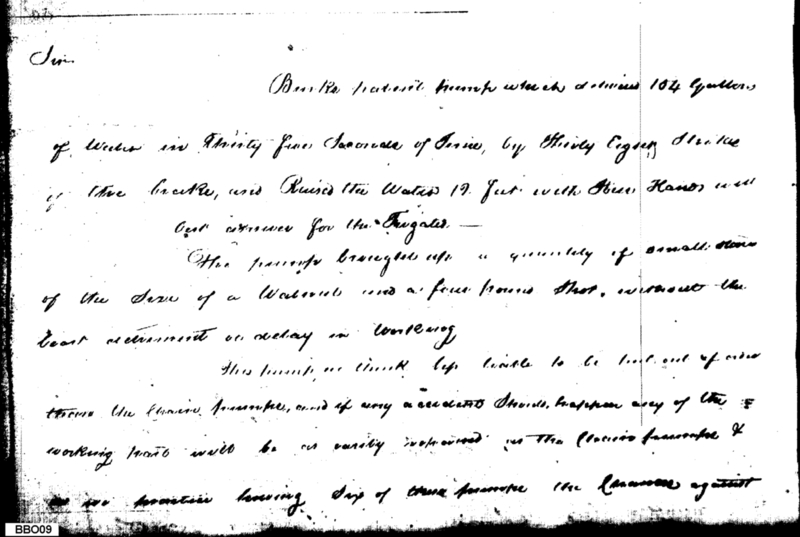 Sir
Binks patent pump which delivers 104 Gallons
of Water in Thirty five Seconds of Time, by Thirty Eight Strokes
of the brake, and Raised the Water 19 feet with four Hands will
best answer for the Frigates —
This pump brought up a quantity of small stones
of the Size of a Walnut and a four pound Shot, without the
least detriment or delay in Working
This pump, we think less liable to be put out of order
than the Chain pumps, and if any accident Should happen any of the
working parts will be as easily repaired as the Chain pumps &
as we practice having Six of these pumps the Chances against
BBO09